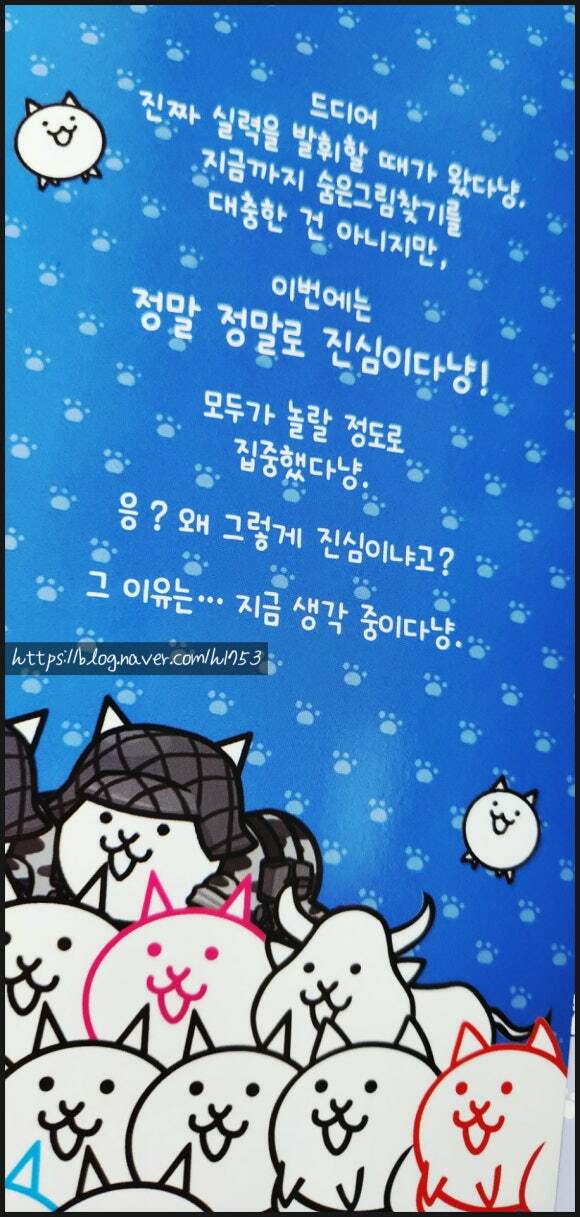 드디어
진짜 실력을 발휘할 때가 왔다냥.
지금까지 숨은그림찾기를
대충한 건 아니지만,
이번에는
정말 정말로 진심이다냥!
모두가 놀랄 정도로
집중했다냥.
응? 왜 그렇게 진심이냐고?
그 이유는… 지금 생각 중이다냥.
https://blog.naver.com/h1753